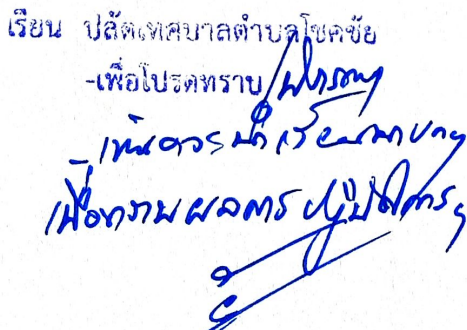 เรียน ปลัดเทศบาลตำบลโชคชัย
-เพื่อโปรดทราบ/พิจารณา
เห็นควรนำเรียนนายกฯ
เพื่อทราบผลการปฏิบัติการฯ